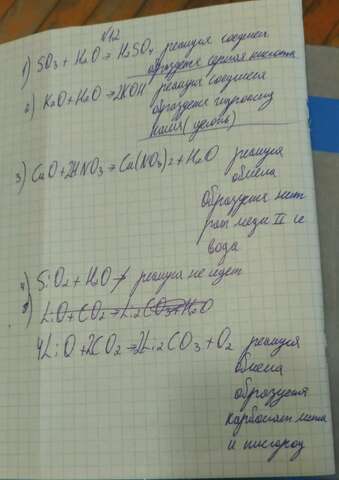 №12
1) SO3 + H2O → H2SO4 реакция соединен
образуется серная кислота
2) K2O + H2O → 2KOH реакция соединен
образуется гидроксид
калия (щелочь)
3) CuO + 2HNO3 → Cu(NO3)2 + H2O реакция
обмена
образуется нит
рат меди II и
вода
4) SiO2 + H2O ↛ реакция не идет
5) LiO + CO2 → Li2CO3 + H2O
4LiO + 2CO2 → 2Li2CO3 + O2 реакция
обмена
образуется
карбонат лития
и кислород